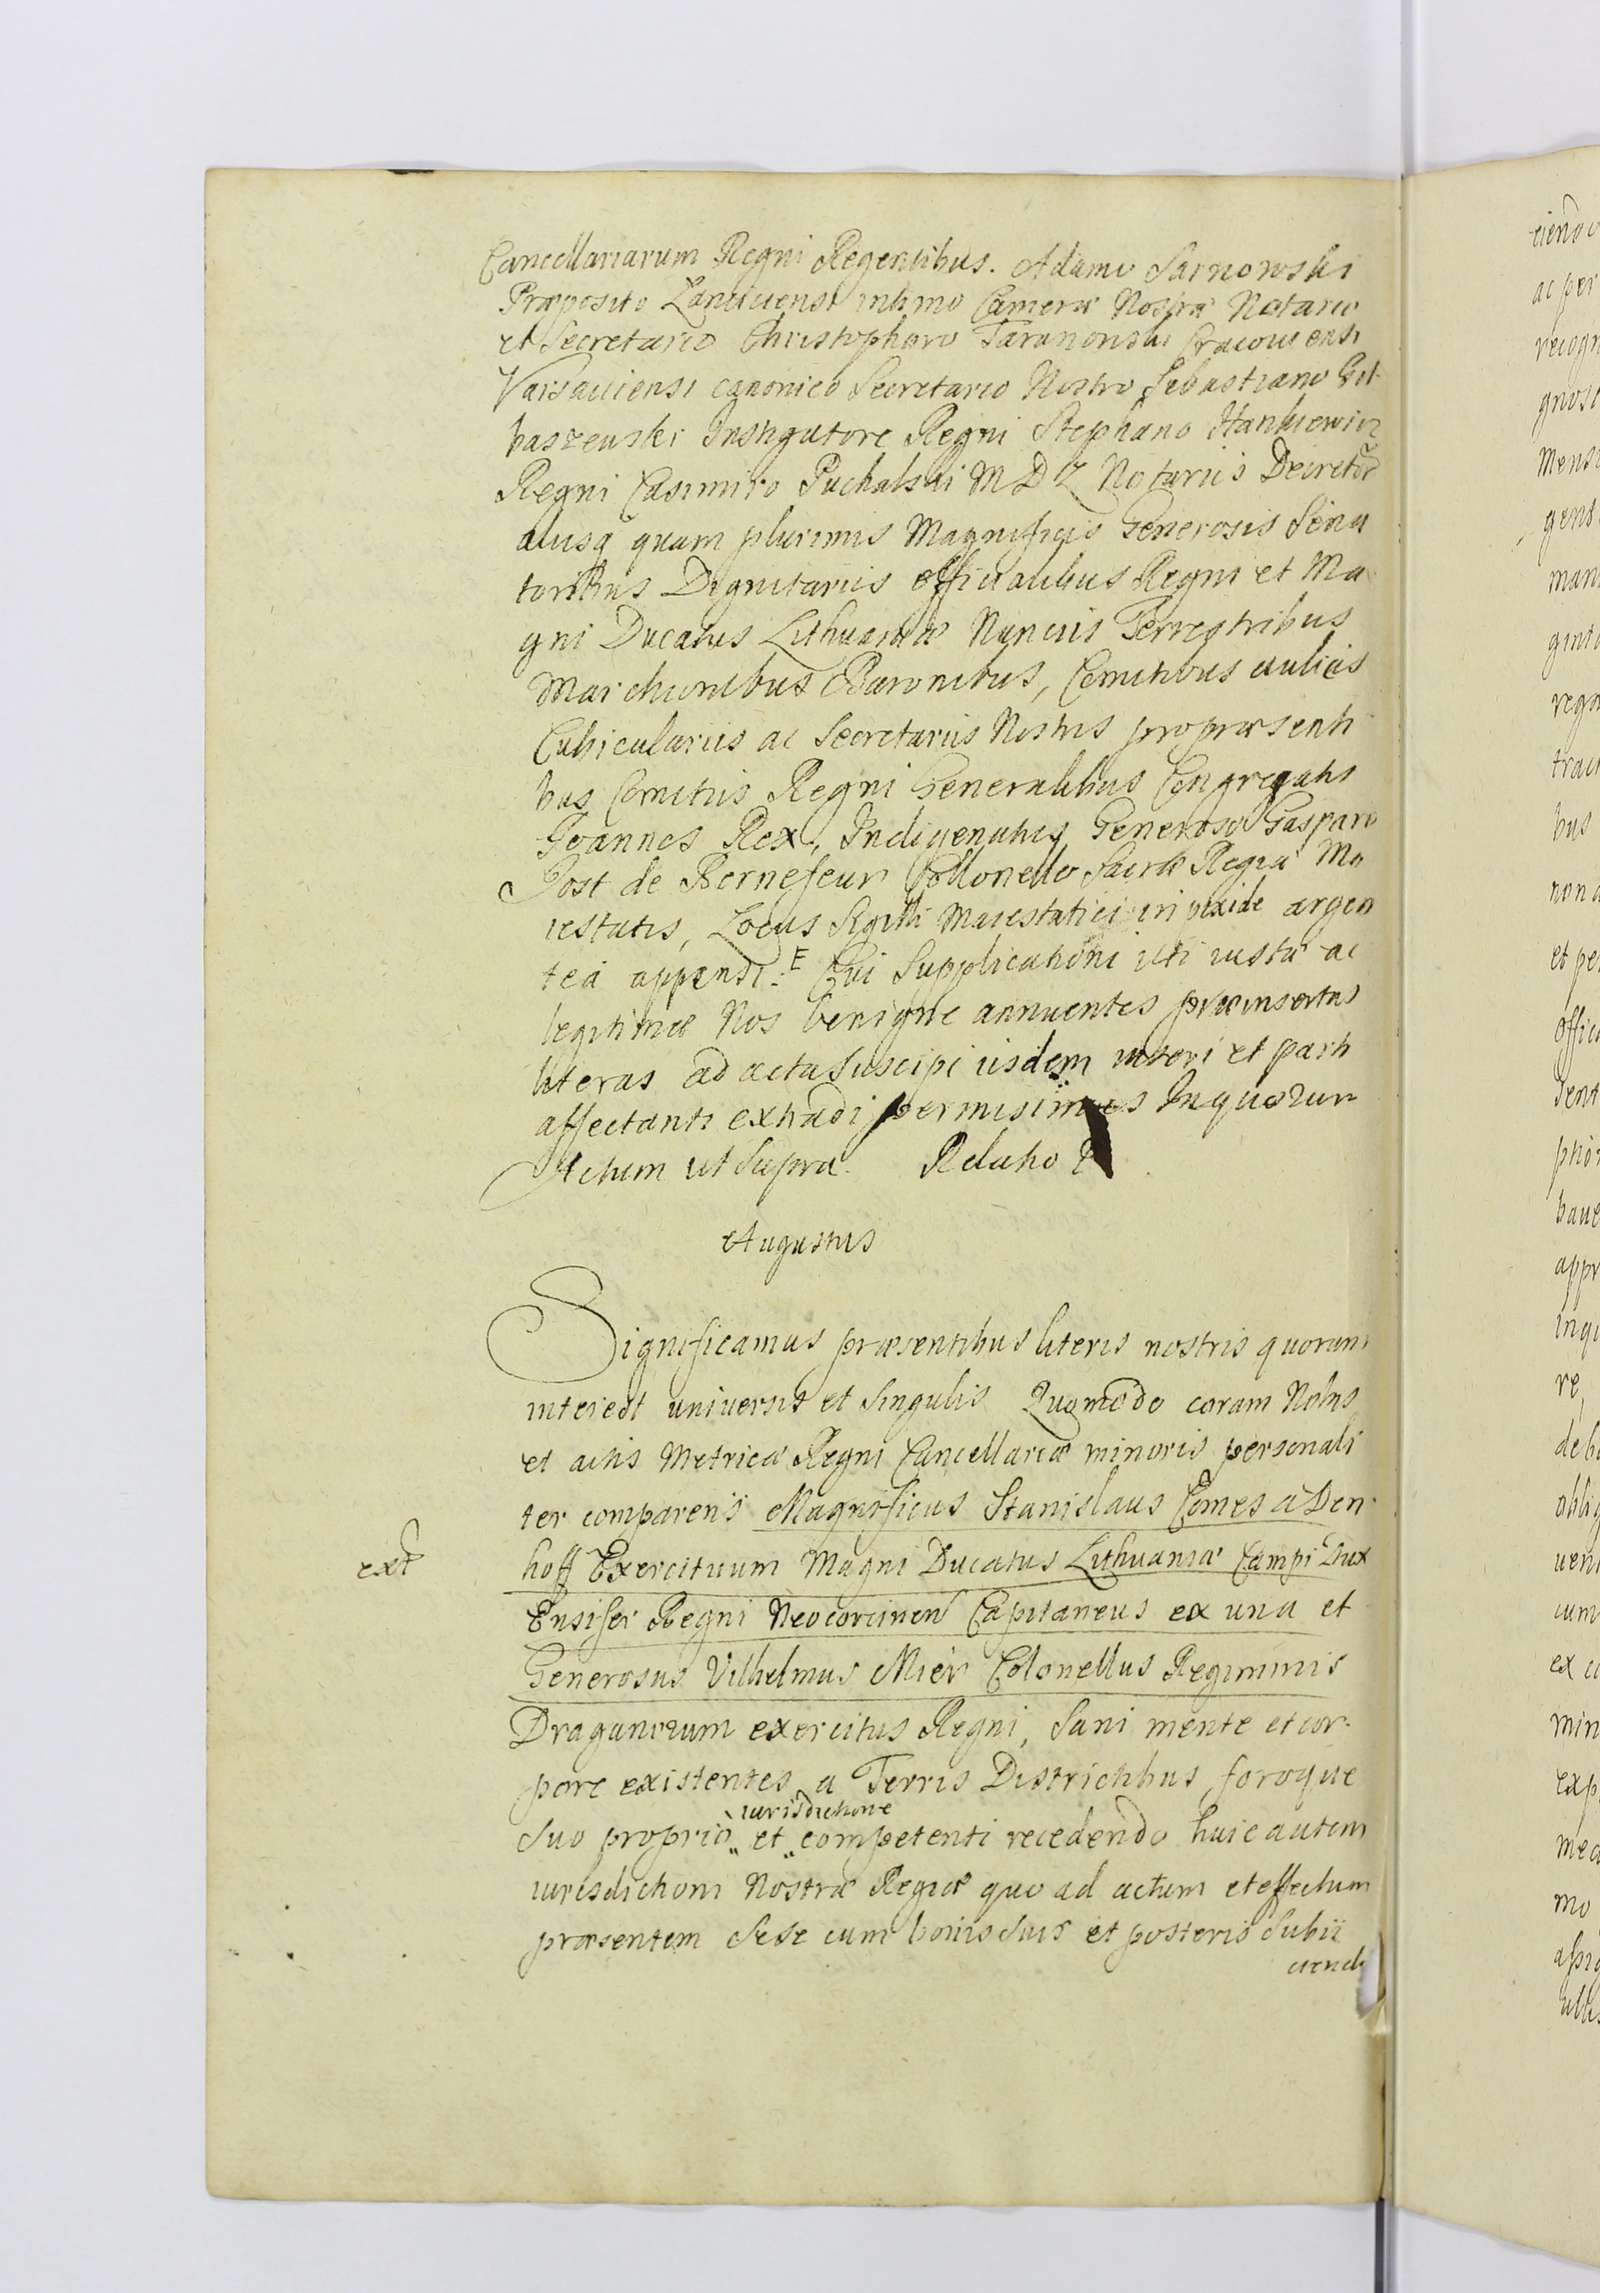 Cancellariarum Regni Regentibus. Adamo Sarnowski
Præposito Lanciciensi intimo Cameræ Nostræ Notario
et Secretario Christophoro Taranowski Cracouiensi
Varsauiensi canonico Secretario Nostro Sebastiano Gił-
baszewski Instigatore Regni Stephano Hankiewicz
Regni Casimiro Puchalski M D L Notariis Decretor
aliisq quam plurimis Magnificis Generosis Sena
toribus Dignitariis officialibus Regni et Ma
gni Ducatus Lithuaniæ Nunciis Terrestribus
Marchionibus Baronibus, Comitibus aulicis
Cubiculariis ac Secretariis Nostris pro præsenti
bus Comitiis Regni Generalibus Congregatis
Joannes Rex, Indigenatus Generoso Gasparo
Jost de Bernefeur Collonello Sacræ Regiæ Ma
iestatis, Locus Sigilli Maiestatici in pixide argen
tea appensi. E Cui Supplicationi uti iustæ ac
legitimæ Nos benigne annuentes præinsertas
literas ad acta suscipi iisdem inseri et parti
affectanti extradi permisimus In quorum
Actum ut supra. Relatio
Augustus
Significamus præsentibus literis nostris quorum
interest universis et singulis Quomodo coram Nobis
et actis Metricæ Regni Cancellariæ minoris personali
ter comparens Magnificus Stanislaus Comes a Den
hoff Exercituum Magni Ducatus Lithuaniæ Campi Dux
ext
Ensifer Regni Neocorcinen Capitaneus ex una et
Generosus Vilhelmus Mier Colonellus Regiminis
Draganorum exercitus Regni, sani mente et cor-
pore existentes a Terris Districtibus foroque
iurisdictione
suo proprio et competenti recedendo huic autem
iurisdictioni Nostræ Regiæ quo ad actum et effectum
præsentem sese cum bonis suis et posteris subii
ciendo